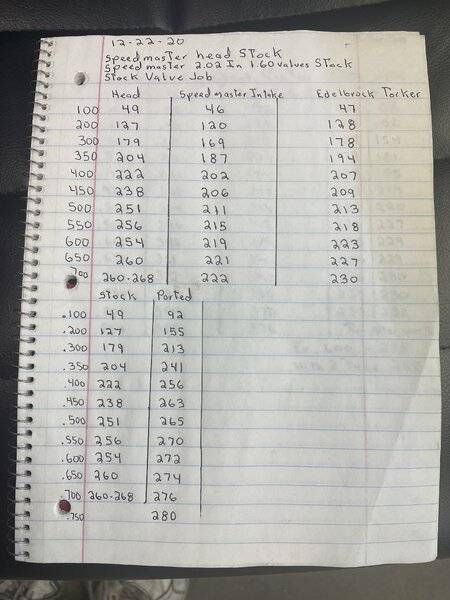 12-22-20
Speedmaster head Stock
Speedmaster 2.02 In 1.60 values Stock
Stock Value Job
Head Speedmaster Intake Edelbrock Torker
100 49 46 47
200 127 120 128
300 179 169 178
350 204 187 194
400 222 202 207
450 238 206 209
500 251 211 213
550 256 215 218
600 254 219 223
650 260 221 227
700 260-268 222 230
Stock Ported
.100 49 92
.200 127 155
.300 179 213
.350 204 241
.400 222 256
.450 238 263
.500 251 265
.550 256 270
.600 254 272
.650 260 274
.700 260-268 276
.750 280